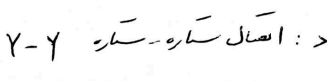 د : اتصال ستاره - ستاره Y - Y